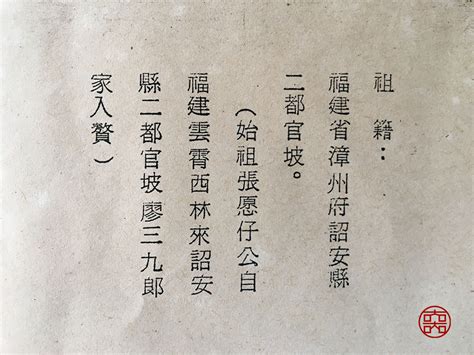 祖籍：
福建省漳州府詔安縣
二都官坡。
（始祖張愿仔公自
福建雲霄西林來詔安
縣二都官坡廖三九郎
家入贅）